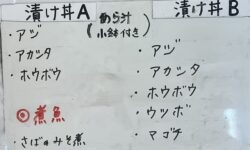 漬け丼A
(あら汁
小鉢付き)
・アジ
・アカシタ
・ホウボウ
◎煮魚
・さばのみそ煮
漬け丼B
・アジ
・アカシタ
・ホウボウ
・ウツボ
・マゴチ